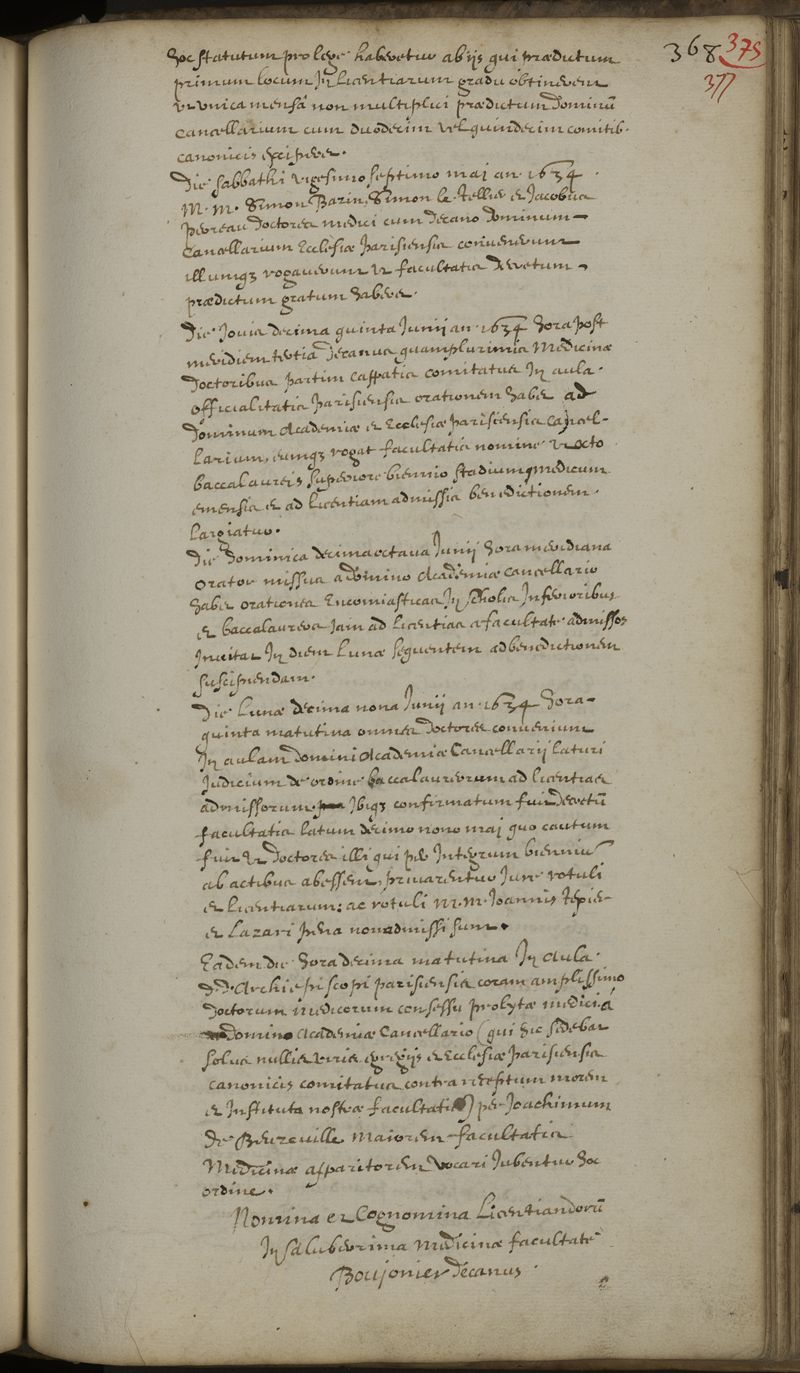 368 375
377
hoc statutum pro lege haberetur ab iis qui prædictum
primum locum In licentiarum gradu obtinerent
ut unica mensa non multiplici prædictum Dominū
Cancellarium cum duodecim vel quindecim comitib.
canonicis exciperet.
Die sabbathi vigesimo septimo maj an. 1634.
M. M. Simon Bazin, Simon le Tellier et Jacobus
perreau doctores medici cum decano dominum
Cancellarium Ecclesiæ parisiensis convenerunt
illumqz rogaverunt ut facultatis decretum
prædictum gratum haberet.
Die Jovis decima quinta Junij an. 1634 hora post
meridiem tertia Decanus quamplurimis Medicinæ
doctoribus partim cappatis comitatus In aula
officialitatis parisiensis orationem habet ad
Dominum Academiæ et Ecclesiæ parisiensis cancel-
larium, eumqz rogat facultatis nomine ut octo
baccalaureis superiore biennio stadiumq medicum
emensis et ad licentiam admissis benedictionem
largiatur.
Die Dominica decima octava Junij hora meridiana
orator missus a domino Academiæ cancellario
habet orationes Encomiasticas In scholis Inferioribus
et baccalaureos Jam ad licentias a facultate admissos
Invitat In diem lunæ sequentem ad benedictionem
suscipiendam.
Die Lunæ decima nona Junij an. 1634 hora
quinta matutina omnes doctores conveniunt
In aulam domini Academiæ Cancellarij laturi
Judicium de ordine baccalaureorum ad licentias
admissorum Ibiqz confirmatum fuit Decretū
facultatis latum decimo nono maj quo cautum
fuit ut doctores illi qui per Integrum bienniū
ab actibus abessent, privarentur Jure rotuli
et licentiarum: ac rotuli M. M. Joannis
et Lazari pena non admissi sunt.
Eadem die hora decima matutina In Aula
D. D. Archiepiscopi parisiensis coram amplissimo
doctorum medicorum consessu probytæ medici á
Domino Academiæ Cancellario (qui hic sidebat
solus nullis viris egregiis et Ecclesiæ parisiensis
canonicis comitatus contra receptum morem
et Instituta nostræ facultatis) per Joachimum
de Beurcuille maiorem facultatis
Medicinæ apparitorem vocari Jubentur hoc
ordine.
Nomina et Cognomina Licentiandorū
In saluberrima Medicinæ facultate
Boujonier decanus.